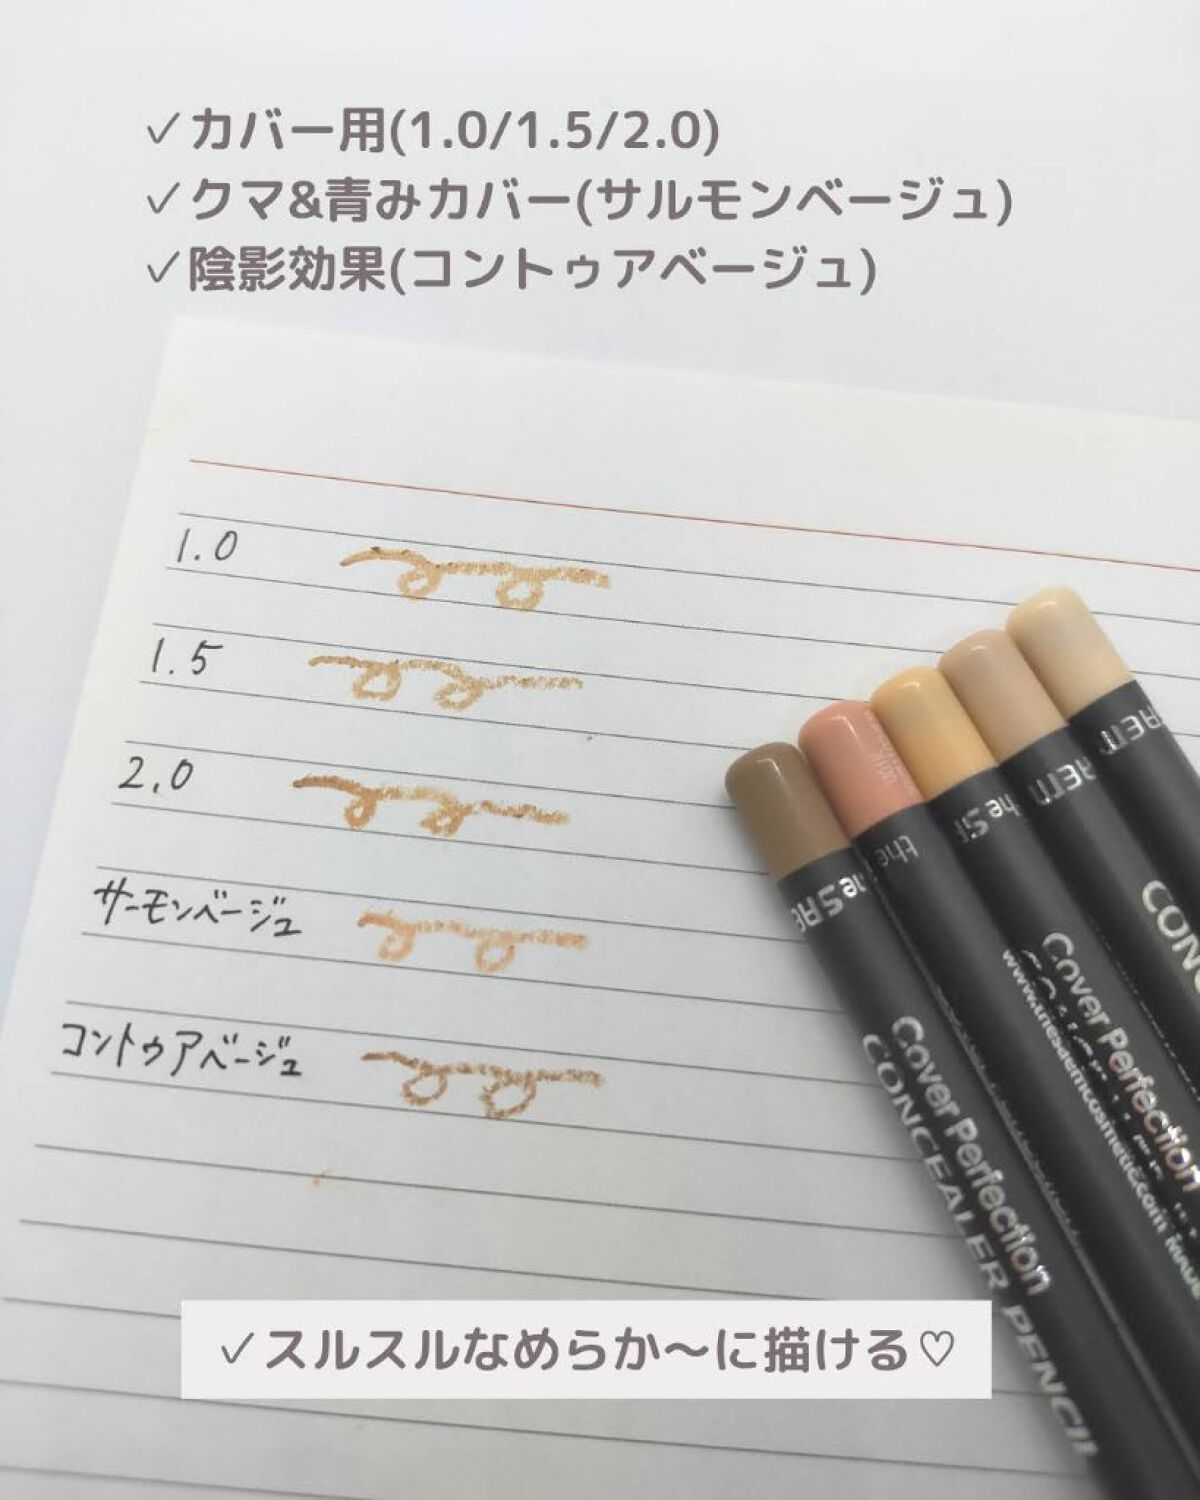 ✓カバー用(1.0/1.5/2.0)
✓クマ&青みカバー(サルモンベージュ)
✓陰影効果(コントゥアベージュ)
1.0
1.5
2.0
サーモンベージュ
コントゥアベージュ
Cover Perfection
CONCEALER PENCIL
Cover Perfection
www.thesaemcosmetic.com
✓スルスルなめらか〜に描ける♡